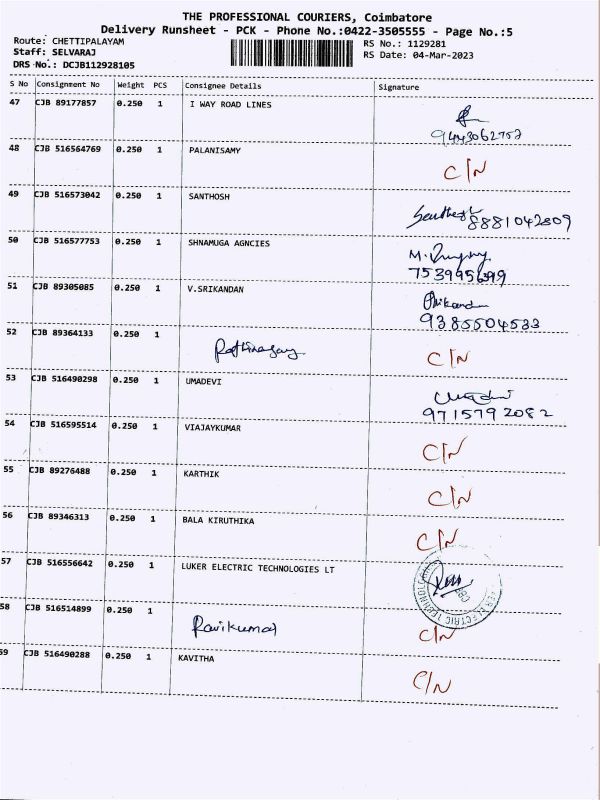 THE PROFESSIONAL COURIERS, Coimbatore
Delivery Runsheet - PCK - Phone No.:0422-3505555 - Page No.:5
Route: CHETTIPALAYAM
Staff: SELVARAJ
DRS No.: DCJB112928105
RS No.: 1129281
RS Date: 04-Mar-2023
S No Consignment No Weight PCS Consignee Details Signature
47 CJB 89177857 0.250 1 I WAY ROAD LINES
9443062752
48 CJB 516564769 0.250 1 PALANISAMY C/N
49 CJB 516573042 0.250 1 SANTHOSH Santhosh 8881042809
50 CJB 516577753 0.250 1 SHNAMUGA AGNCIES
753995699
51 CJB 89305085 0.250 1 V.SRIKANDAN
9385504533
52 CJB 89364133 0.250 1 C/N
53 CJB 516490298 0.250 1 UMADEVI Umadevi
9715792082
54 CJB 516595514 0.250 1 VIAJAYKUMAR C/N
55 CJB 89276488 0.250 1 KARTHIK C/N
56 CJB 89346313 0.250 1 BALA KIRUTHIKA C/N
57 CJB 516556642 0.250 1 LUKER ELECTRIC TECHNOLOGIES LT
58 CJB 516514899 0.250 1 Ravikumar C/N
59 CJB 516490288 0.250 1 KAVITHA C/N